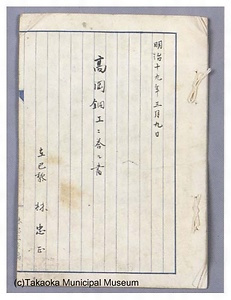 明治十九年三月九日
高岡銅工ニ答書
在巴黎 林忠正
(c)Takaoka Municipal Museum